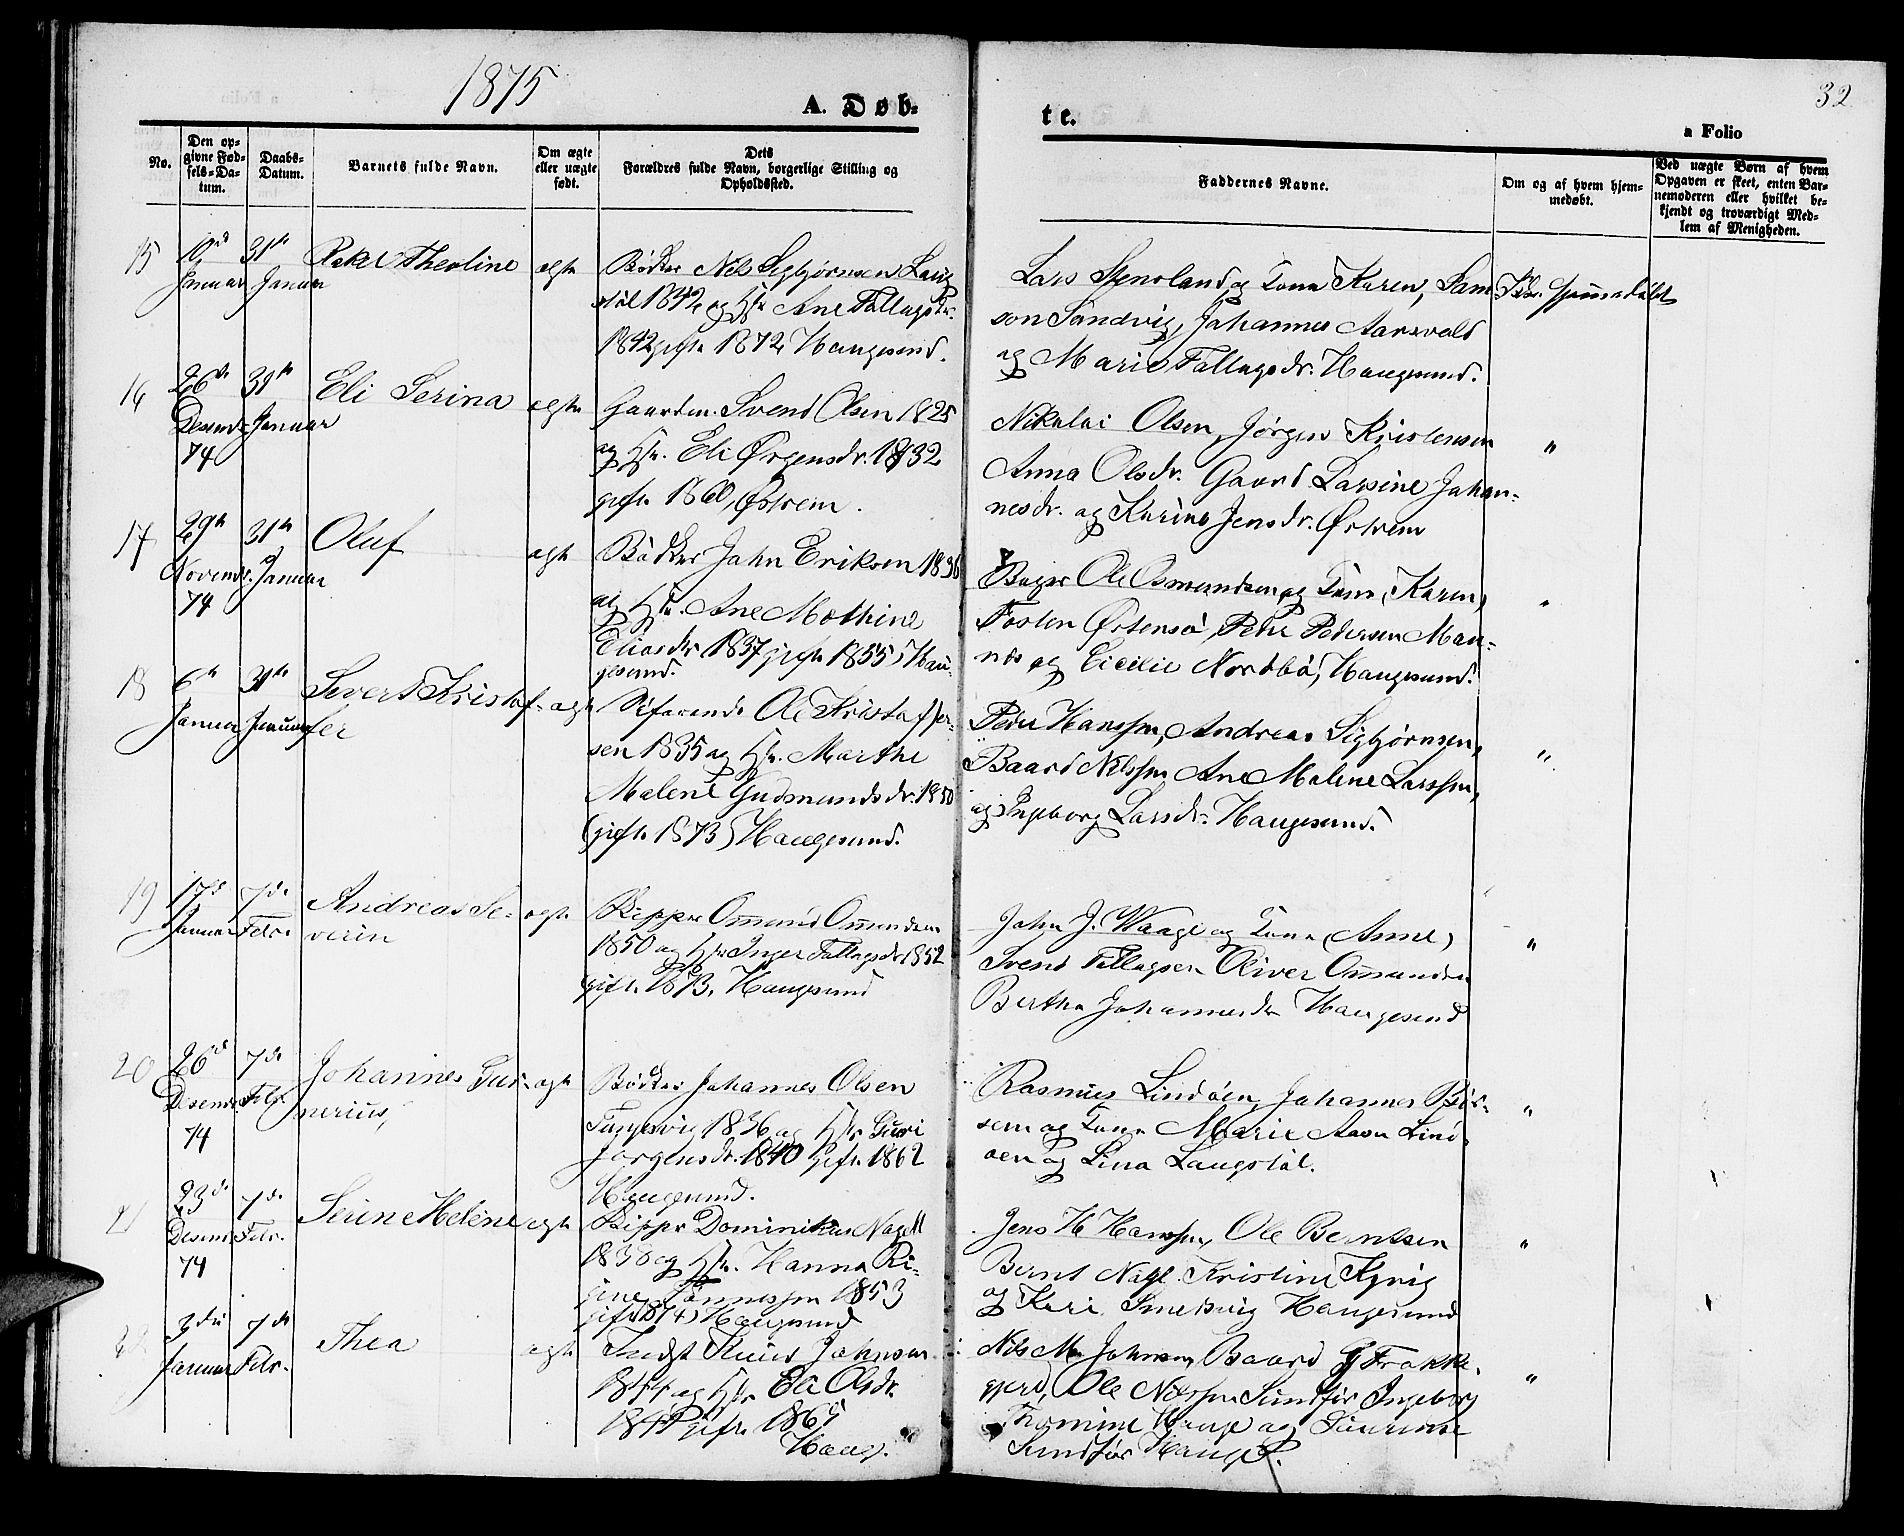 1875
A. Døb-
te.
32
a Folio
No.
Den op-
givne Fød-
sels-Da-
tum.
Daabs-
Datum.
Barnets fulde Navn.
Om ægte
eller uægte
født.
Dets
Forældres fulde Navn, borgerlige Stilling og
Opholdssted.
Faddernes Navne.
Om og af hvem hjem-
medøbt.
Ved uægte Børn af hvem
Opgaven er skeet, enten Bar-
nemoderen eller hvilket be-
kjendt og troværdigt Med-
lem af Menigheden.
15
31te
Januar Januar
Theoline
ægte
Bødker Nils Sigbjørnsen Lang
støl og Hst. Ane Tallagsdr.
1842 gift 1872, Haugesund.
Lars Stensland og Kone Karen, Sam
son Sandvig, Johannes
og Marie Tallagsdr. Haugesund.
16
26de 31te
Desembr Januar
74
Eli Serina
ægte
Gaardm. Svend Olsen 1825
og Hst. Eli Ørgensdr. 1832
gift 1860, Østrem.
Nikolai Olsen, Jørgen Kristensen
Anna Olsdr. Gaard Larsine Johan-
nesdr. og Karine Jensdr. Østrem
"
17
29de 31te
Novembr. Januar
74
Oluf
ægte
Bødker John Eriksen 1836
og Hst. Ane Mathine
Eliasdr 1837 gift 1855, Hau-
gesund.
Bager Ole Osmundsen og Kone, Karen,
Østensø, Peder Pedersen Man-
nes og Cicilie Nordbø, Haugesund.
"
18
6te 31te
Januar Januar
Severt Kristof-
fer
ægte
Søfarende Ole Kristoffer-
sen 1835 og Hst. Marthe
Malene Gudmundsdr. 1850
(gift 1873) Haugesund.
Peder Hanssen, Andreas Sigbjørnsen,
Baard Nilssen Ane Malene Larssen,
og Ingeborg Larsdr. Haugesund.
"
19
17de 7de
Januar Febr.
Andreas Se-
verin
ægte
Skipper Ommund Ommundsen
1850 og Hst Inger Tallagsdr 1852
gift. 1873, Haugesund
John J. Waage og Kone (Anne)
Svend Tallagsen Oliver Ommundsen
Bertha Johannesdr Haugesund
"
20
26de 7de
Desembr Febr.
74
Johannes Gun-
nerius,
ægte
Bødker Johannes Olsen
1836 og Hst Guri
Jørgensdr. 1840 Gift. 1862
Haugesund.
Rasmus Lindøen, Johannes Bør-
sem og Kone Marie Aasa Lind-
øen og Lina Langstøl.
"
21
23de 7de
Desembr Febr.
74
Serine Helene
ægte
Skipper Dominikus Nagell
1838 og Hst. Hanna Re-
gine Tønnessen 1853
gift 1874) Haugesund
Jens H Hanssen, Ole Berntsen
Bernt Kristine
og Kari Haugesund
"
22
3die 7de
Januar Febr.
Thea
ægte
Indst Knud Johnsen
1844 og Hst Eli Olsdr.
gift. 1865
Haug.
Nils M. Johnsen, Baard G Frakke-
gjerd, Ole Nilssen Sundfør Ingeborg
Thomine Hauge og Laurense
Sundfør Hauges.
"